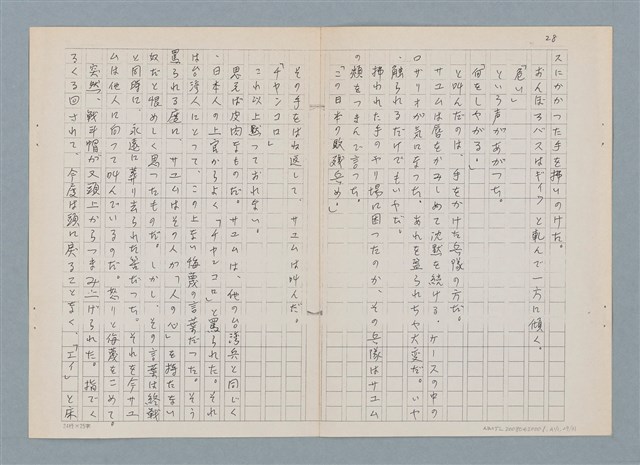 28
スにかかった手を掃いのけた。
おんぼろバスはギイクと軋んで一方に傾く。
「危い」
という声があがった。
「何をしやがる。」
と叫んだのは、手をかけた兵隊の方だ。
サユムは唇をかみしめて沈黙を続ける。ケースの中の
ロサリオが気になった。あれを盗られちゃ大変だ。いや
触られるだけでもいやだ。
掃われた手のやり場に困ったのか、その兵隊はサユム
の頬をつきんで言った。
「この日本の敗残兵め。」
その手をはね返して、サユムは叫んだ。
「チャンコロ」
これ以上黙っておれない。
思えば皮肉なものだ。サユムは、他の台湾兵と同じく
、日本人の上官からよく「チャンコロ」と罵られた。それ
は台湾人にとって、この上ない侮蔑の言葉だった。そう
罵られる度に、サユムはその人が「人の心」を持たない
奴だと恨めしく思ったものだ。しかし、その言葉は終戦
と同時に永遠に葬り去られた筈だった。それを今サユ
ムは他人に向って叫んでいるのだ。怒りと侮蔑をこめて。
突然、戦斗帽が又頭上からつまみ上げられた。指でく
るくる回されて、今度は頭に戻ることなく、「エイ」と床